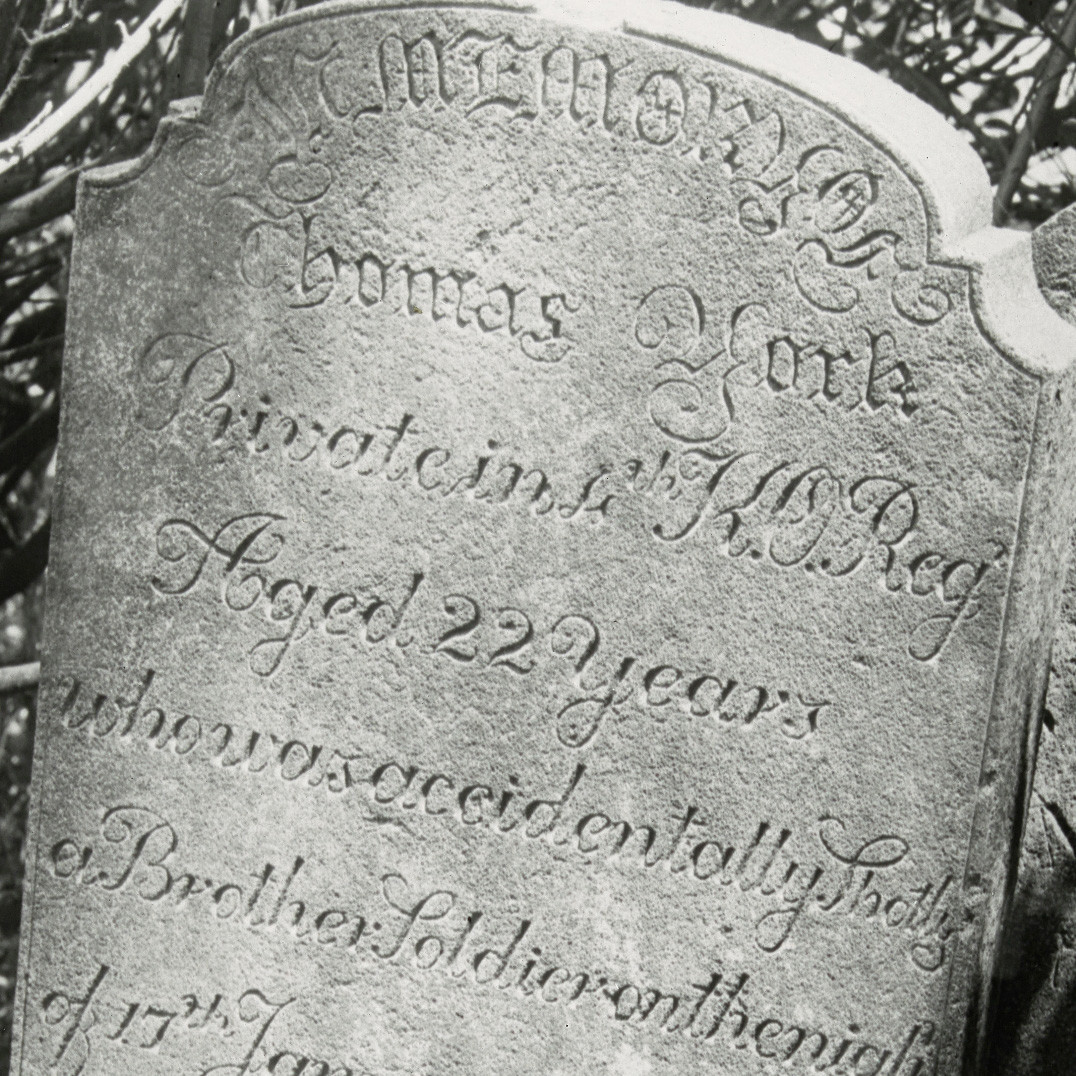 IN MEMORY OF
Thomas York
Private in 4th K.O. Reg
Aged 22 Years
who was accidentally Shot by
a Brother Soldier on the nigh
of 17th Jan